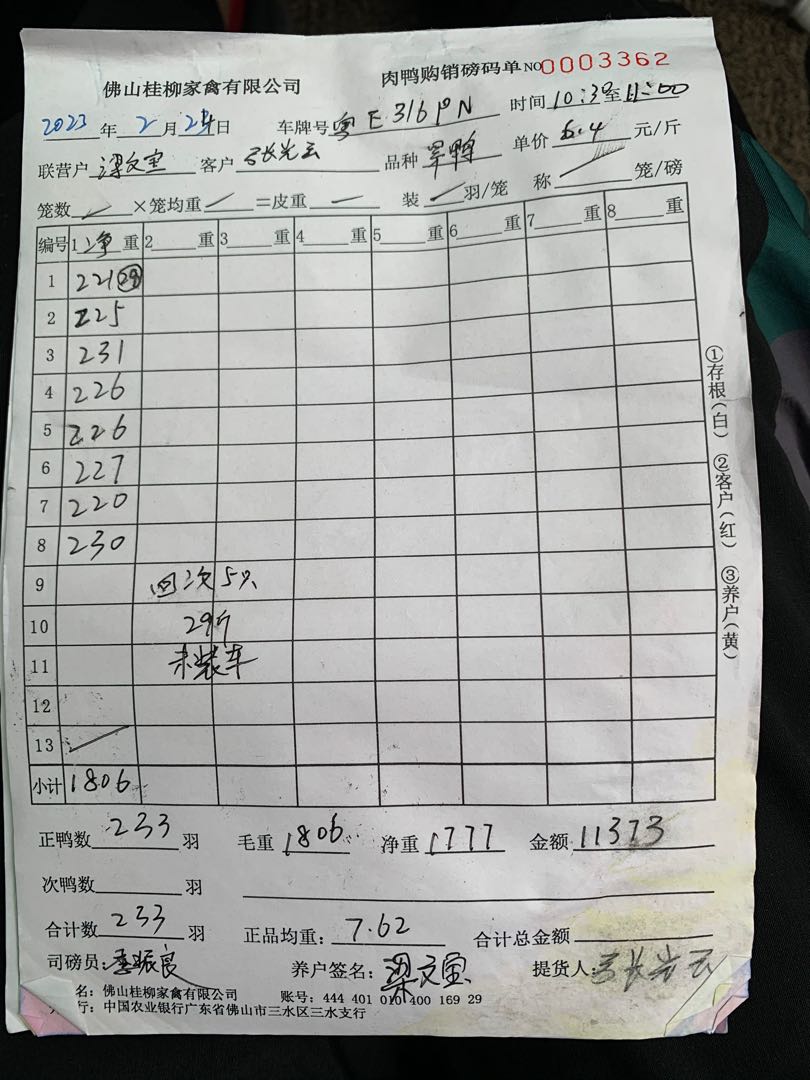 佛山桂柳家禽有限公司 肉鸭购销磅码单 NO 0003362
2023 年 2 月 24 日 车牌号 粤E 316PN 时间 10:30 至 11:00
联营户 梁文宝 客户 弓长光云 品种 旱鸭 单价 6.4 元/斤
笼数 ×笼均重 =皮重 装 羽/笼 称 笼/磅
编号 1 净 重 2 重 3 重 4 重 5 重 6 重 7 重 8 重
1 221 29
2 225
3 231
4 226
5 226
6 227
7 220
8 230
9 回次5只
10 29斤
11 未装车
12
13
小计 1806
正鸭数 233 羽 毛重 1806 净重 1777 金额 11373
次鸭数 羽
合计数 233 羽 正品均重: 7.62 合计总金额
司磅员: 李振良 养户签名: 梁文宝 提货人: 弓长光云
名: 佛山桂柳家禽有限公司 账号: 444 401 010 400 169 29
行: 中国农业银行广东省佛山市三水区三水支行
①存根(白) ②客户(红) ③养户(黄)